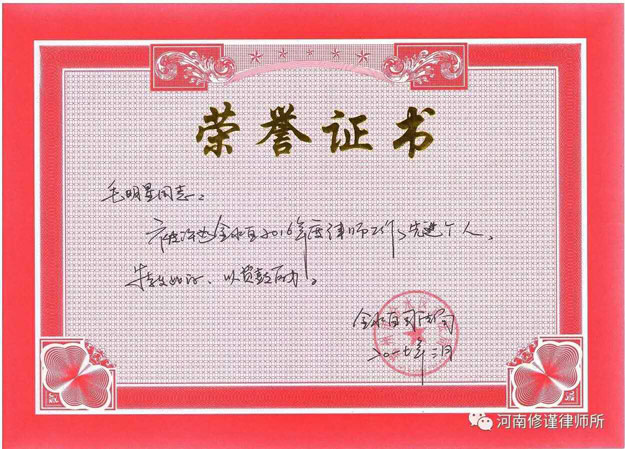 荣誉证书
毛明星同志：
被评为金水区2016年度律师工作先进个人，
特发此证，以资鼓励。
金水区司法局
二〇一七年三月
河南修谨律师所